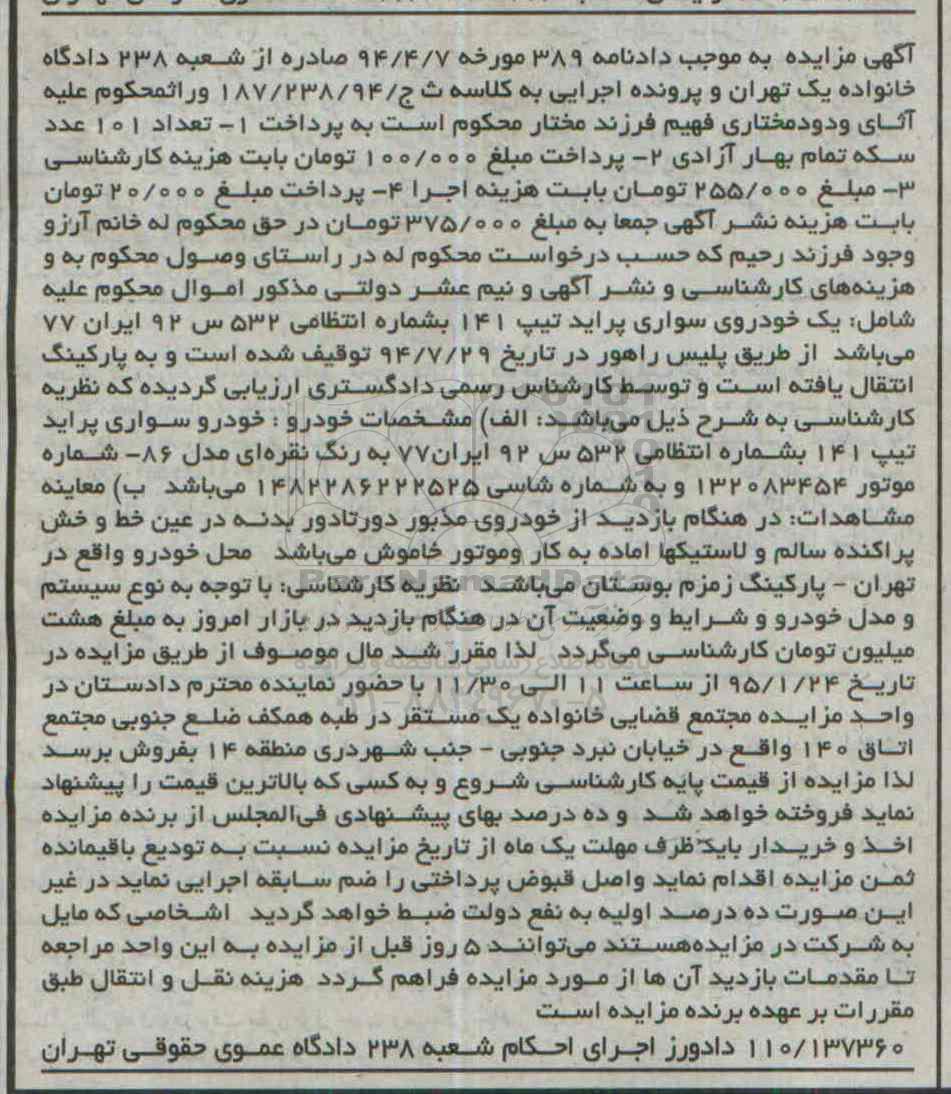 آگهی مزایده به موجب دادنامه ۳۸۹ مورخه ۹۴/۴/۷ صادره از شعبه ۲۳۸ دادگاه
خانواده یک تهران و پرونده اجرایی به کلاسه ث ج/۱۸۷/۲۳۸/۹۴ وراثمحکوم علیه
آثای ودودمختاری فهیم فرزند مختار محکوم است به پرداخت ۱- تعداد ۱۰۱ عدد
سکه تمام بهار آزادی ۲- پرداخت مبلغ ۱۰۰/۰۰۰ تومان بابت هزینه کارشناسی
۳- مبلغ ۲۵۵/۰۰۰ تومان بابت هزینه اجرا ۴- پرداخت مبلغ ۲۰/۰۰۰ تومان
بابت هزینه نشر آگهی جمعا به مبلغ ۳۷۵/۰۰۰ تومان در حق محکوم له خانم آرزو
وجود فرزند رحیم که حسب درخواست محکوم له در راستای وصول محکوم به و
هزینه‌های کارشناسی و نشر آگهی و نیم عشر دولتی مذکور اموال محکوم علیه
شامل: یک خودروی سواری پراید تیپ ۱۴۱ بشماره انتظامی ۵۳۲ س ۹۲ ایران ۷۷
می‌باشد از طریق پلیس راهور در تاریخ ۹۴/۷/۲۹ توقیف شده است و به پارکینگ
انتقال یافته است و توسط کارشناس رسمی دادگستری ارزیابی گردیده که نظریه
کارشناسی به شرح ذیل می‌باشد: الف) مشخصات خودرو : خودرو سواری پراید
تیپ ۱۴۱ بشماره انتظامی ۵۳۲ س ۹۲ ایران۷۷ به رنگ نقره‌ای مدل ۸۶- شماره
موتور ۱۳۲۰۸۳۴۵۴ و به شماره شاسی ۱۴۸۲۲۸۶۲۲۲۵۲۵ می‌باشد ب) معاینه
مشاهدات: در هنگام بازدید از خودروی مذبور دورتادور بدنه در عین خط و خش
پراکنده سالم و لاستیکها اماده به کار وموتور خاموش می‌باشد محل خودرو واقع در
تهران - پارکینگ زمزم بوستان می‌باشد نظریه کارشناسی: با توجه به نوع سیستم
و مدل خودرو و شرایط و وضعیت آن در هنگام بازدید در بازار امروز به مبلغ هشت
میلیون تومان کارشناسی می‌گردد لذا مقرر شد مال موصوف از طریق مزایده در
تاریخ ۹۵/۱/۲۴ از ساعت ۱۱ الی ۱۱/۳۰ با حضور نماینده محترم دادستان در
واحد مزایده مجتمع قضایی خانواده یک مستقر در طبه همکف ضلع جنوبی مجتمع
اتاق ۱۴۰ واقع در خیابان نبرد جنوبی - جنب شهردری منطقه ۱۴ بفروش برسد
لذا مزایده از قیمت پایه کارشناسی شروع و به کسی که بالاترین قیمت را پیشنهاد
نماید فروخته خواهد شد و ده درصد بهای پیشنهادی فی‌المجلس از برنده مزایده
اخذ و خریدار باید ظرف مهلت یک ماه از تاریخ مزایده نسبت به تودیع باقیمانده
ثمن مزایده اقدام نماید واصل قبوض پرداختی را ضم سابقه اجرایی نماید در غیر
این صورت ده درصد اولیه به نفع دولت ضبط خواهد گردید اشخاصی که مایل
به شرکت در مزایده‌هستند می‌توانند ۵ روز قبل از مزایده به این واحد مراجعه
تا مقدمات بازدید آن ها از مورد مزایده فراهم گردد هزینه نقل و انتقال طبق
مقررات بر عهده برنده مزایده است
۱۱۰/۱۳۷۳۶۰ دادورز اجرای احکام شعبه ۲۳۸ دادگاه عموی حقوقی تهران